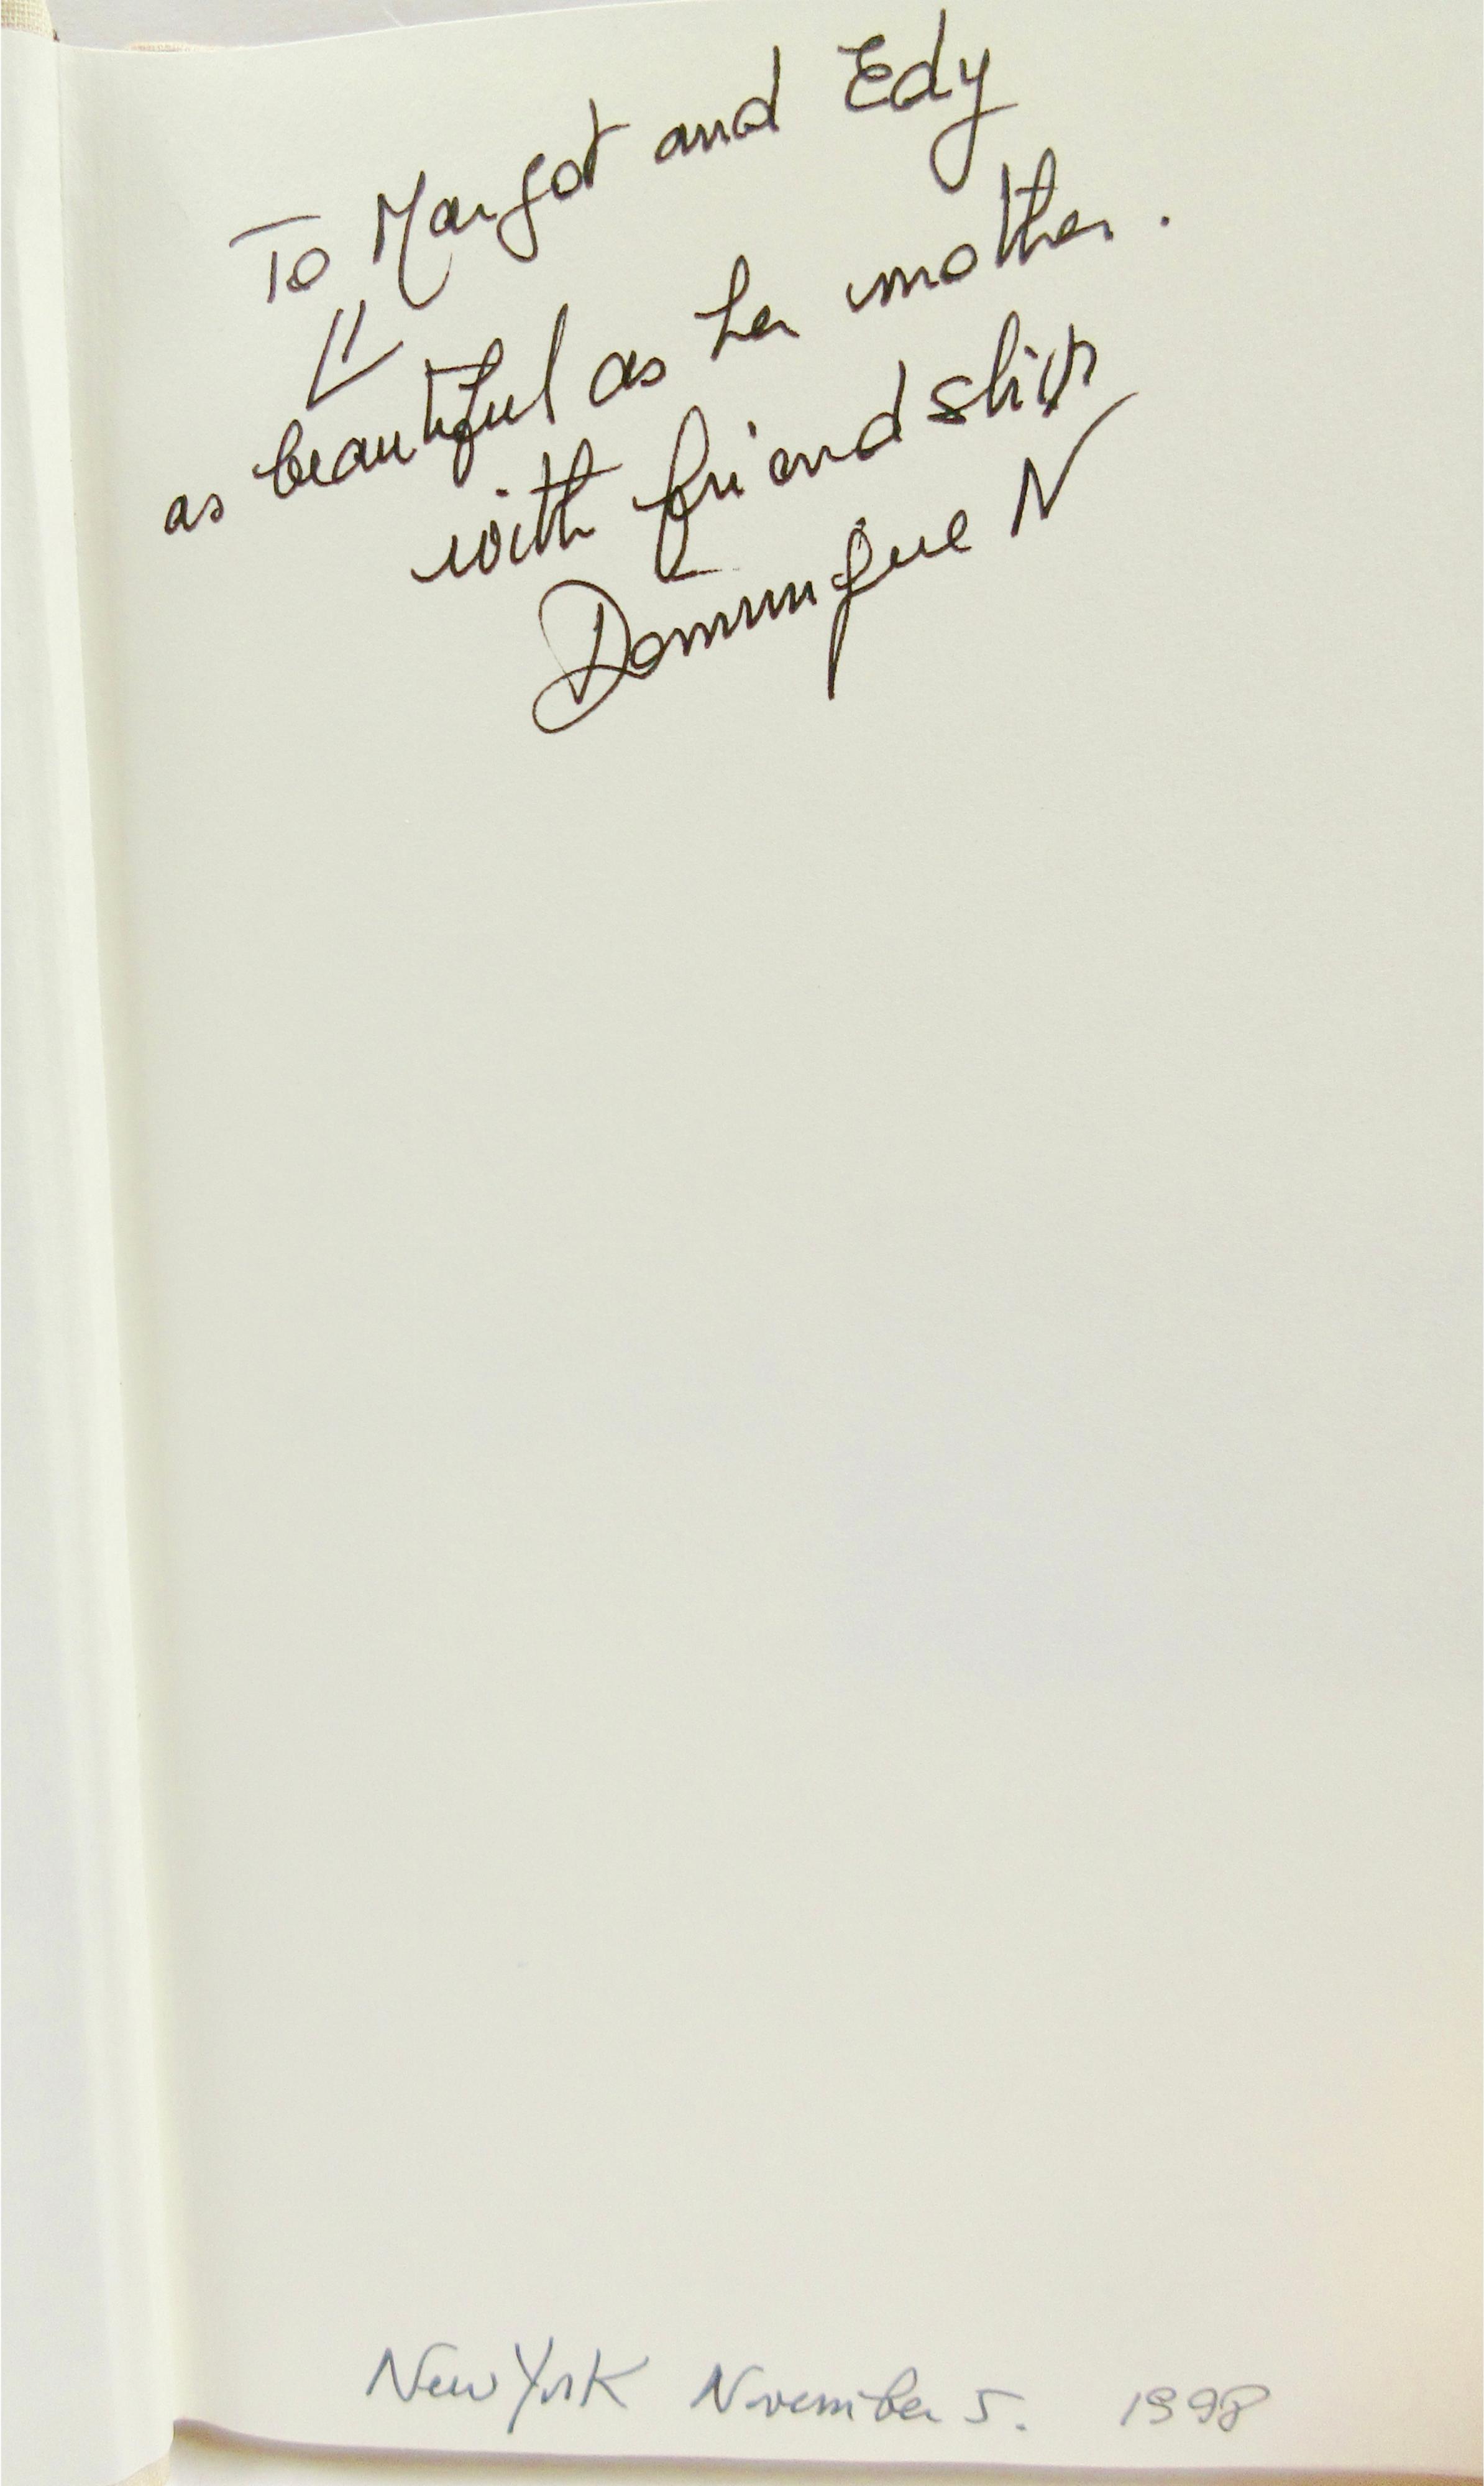 To Margot and Edy
as beautiful as her mother.
with friendship
Dominique N
New York November 5. 1998